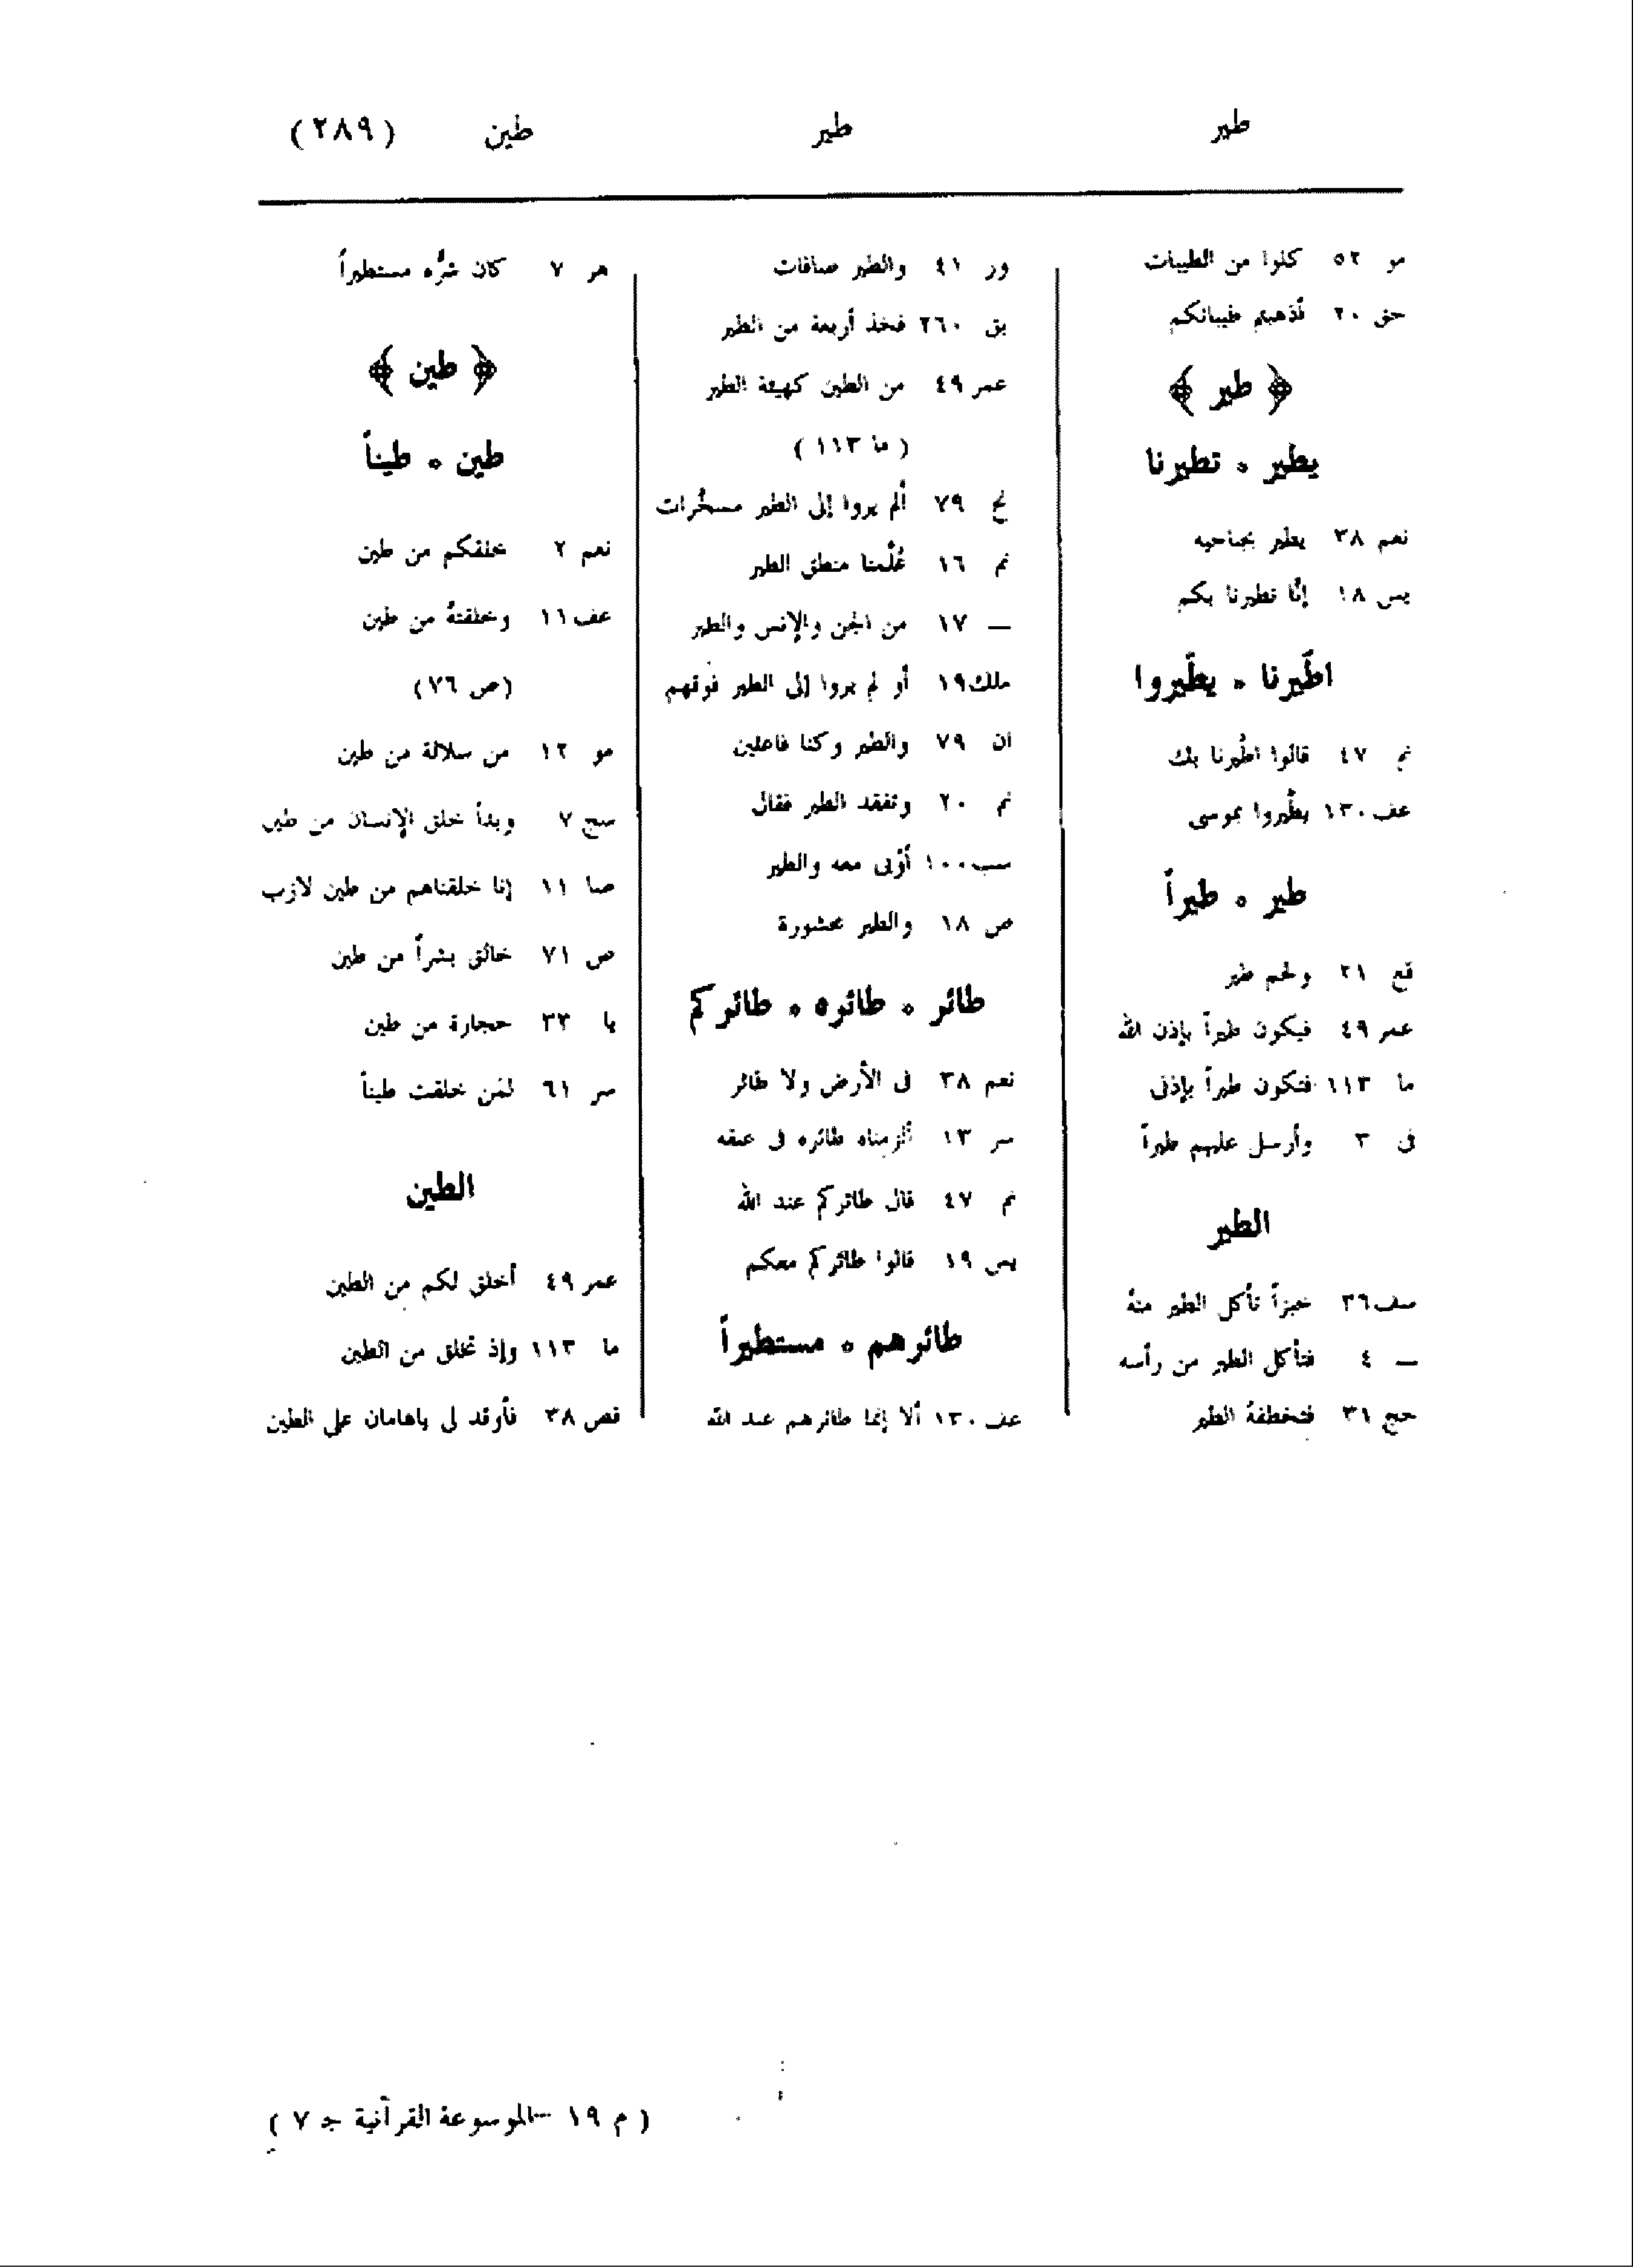 طير
طير
طين
(٢٨٩)
مو ٥٢ كلوا من الطيبات
حق ٢٠ أذهبتم طيباتكم
﴿ طير ﴾
يطير ٠ تطيرنا
نعم ٣٨ يطير بجناحيه
يس ١٨ إنّا تطيرنا بكم
اطّيرنا ٠ يطّيروا
نم ٤٧ قالوا اطّيرنا بك
عف ١٣٠ يطّيروا بموسى
طير ٠ طيراً
قع ٢١ ولحم طير
عمر ٤٩ فيكون طيراً بإذن الله
ما ١١٣ فتكون طيراً بإذنى
فى ٣ وأرسل عليهم طيراً
الطير
سف ٣٦ خبزاً تأكل الطير منهُ
— ٤ فتأكل الطير من رأسه
حج ٣١ فتخطفهُ الطير
ور ٤١ والطير صافات
بق ٢٦٠ فخذ أربعة من الطير
عمر ٤٩ من الطين كهيئة الطير
( ما ١١٣ )
نح ٧٩ ألم يروا إلى الطير مسخّرات
نم ١٦ عُلّمنا منطق الطير
— ١٧ من الجن والإنس والطير
ملك ١٩ أو لم يروا إلى الطير فوقهم
ان ٧٩ والطير وكنا فاعلين
نم ٢٠ وتفقد الطير فقال
سب ١٠٠ أوّبى معه والطير
ص ١٨ والطير محشورة
طائر ٠ طائره ٠ طائركم
نعم ٣٨ فى الأرض ولا طائر
سر ١٣ ألزمناه طائره فى عنقه
نم ٤٧ قال طائركم عند الله
يس ١٩ قالوا طائركم معكم
طائرهم ٠ مستطيراً
عف ١٣٠ ألا إنما طائرهم عند الله
هر ٧ كان شرُّه مستطيراً
﴿ طين ﴾
طين ٠ طيناً
نعم ٢ خلقكم من طين
عف ١١ وخلقتهُ من طين
(ص ٧٦)
مو ١٢ من سلالة من طين
سج ٧ وبدأ خلق الإنسان من طين
صا ١١ إنا خلقناهم من طين لازب
ص ٧١ خالق بشراً من طين
يا ٣٣ حجارة من طين
سر ٦١ لمَن خلقت طيناً
الطين
عمر ٤٩ أخلق لكم من الطين
ما ١١٣ وإذ تخلق من الطين
قص ٣٨ فأوقد لى ياهامان على الطين
( م ١٩ — الموسوعة القرآنية جـ ٧ )